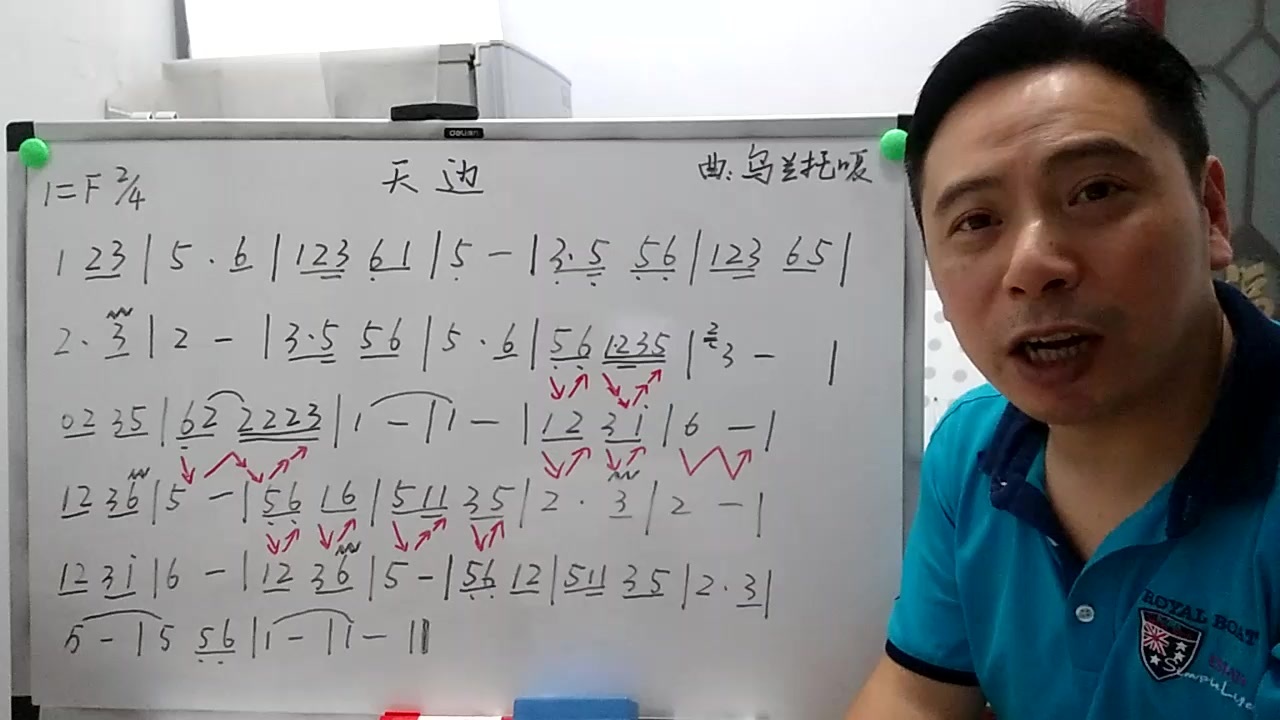 deli
1=F 2/4 天边 曲:乌兰托嘎
1 23 | 5 · 6 | 123 61 | 5 - | 3·5 56 | 123 65 |
2 · 3 | 2 - | 3·5 56 | 5 · 6 | 56 1235 | 3 - |
02 35 | 62 2223 | 1 - | 1 - | 12 31 | 6 - |
12 36 | 5 - | 56 16 | 511 35 | 2 · 3 | 2 - |
12 31 | 6 - | 12 36 | 5 - | 56 12 | 511 35 | 2 · 3 |
5 - | 5 56 | 1 - | 1 - ||
ROYAL BOAT